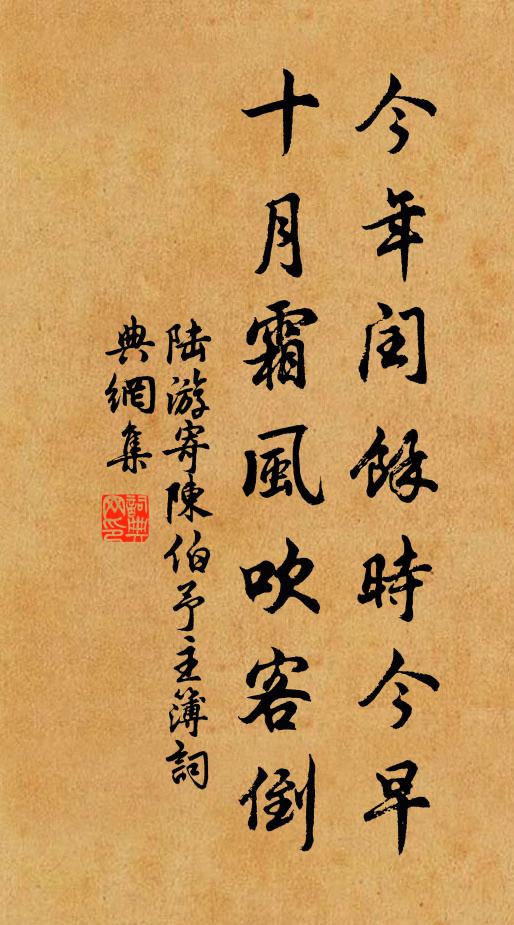 今年閏餘時今早
十月霜風吹客倒
陸游寄陳伯予主簿詞
典網集
詞典網印